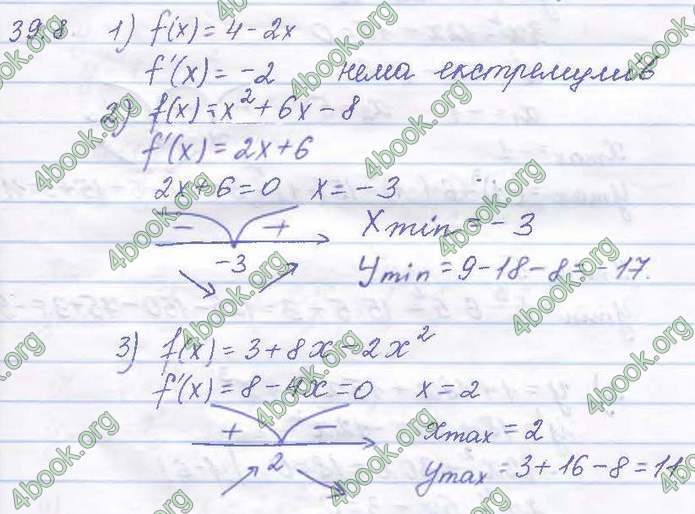 39.8 1) f(x) = 4 - 2x
f'(x) = -2 нема екстремумів
2) f(x) = x² + 6x - 8
f'(x) = 2x + 6
2x + 6 = 0 x = -3
- + xmin = -3
-3 ymin = 9 - 18 - 8 = -17.
3) f(x) = 3 + 8x - 2x²
f'(x) = 8 - 4x = 0 x = 2
+ - xmax = 2
2 ymax = 3 + 16 - 8 = 11
4book.org